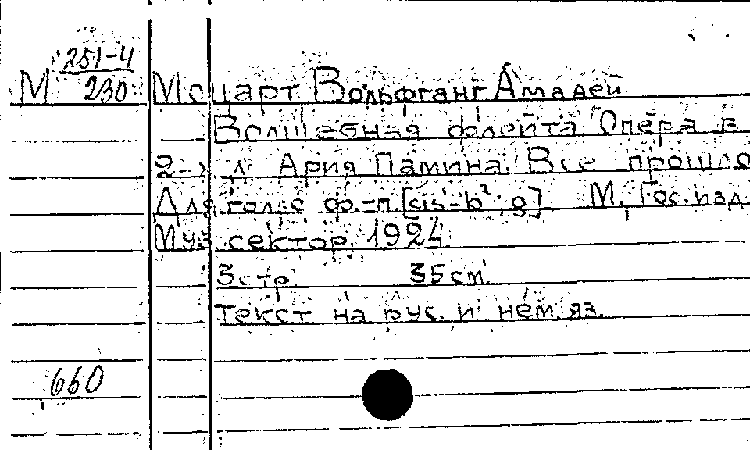 251-4
М 230 Моцарт Вольфганг Амадей
Волшебная флейта Опера в
2-х д. Ария Памина. Все прошло
Для голос ф.-п. [cis-b², g] М, Гос. изд.
Муз. сектор, 1924
3 стр. 35 см.
Текст на рус. и нем. яз.
660